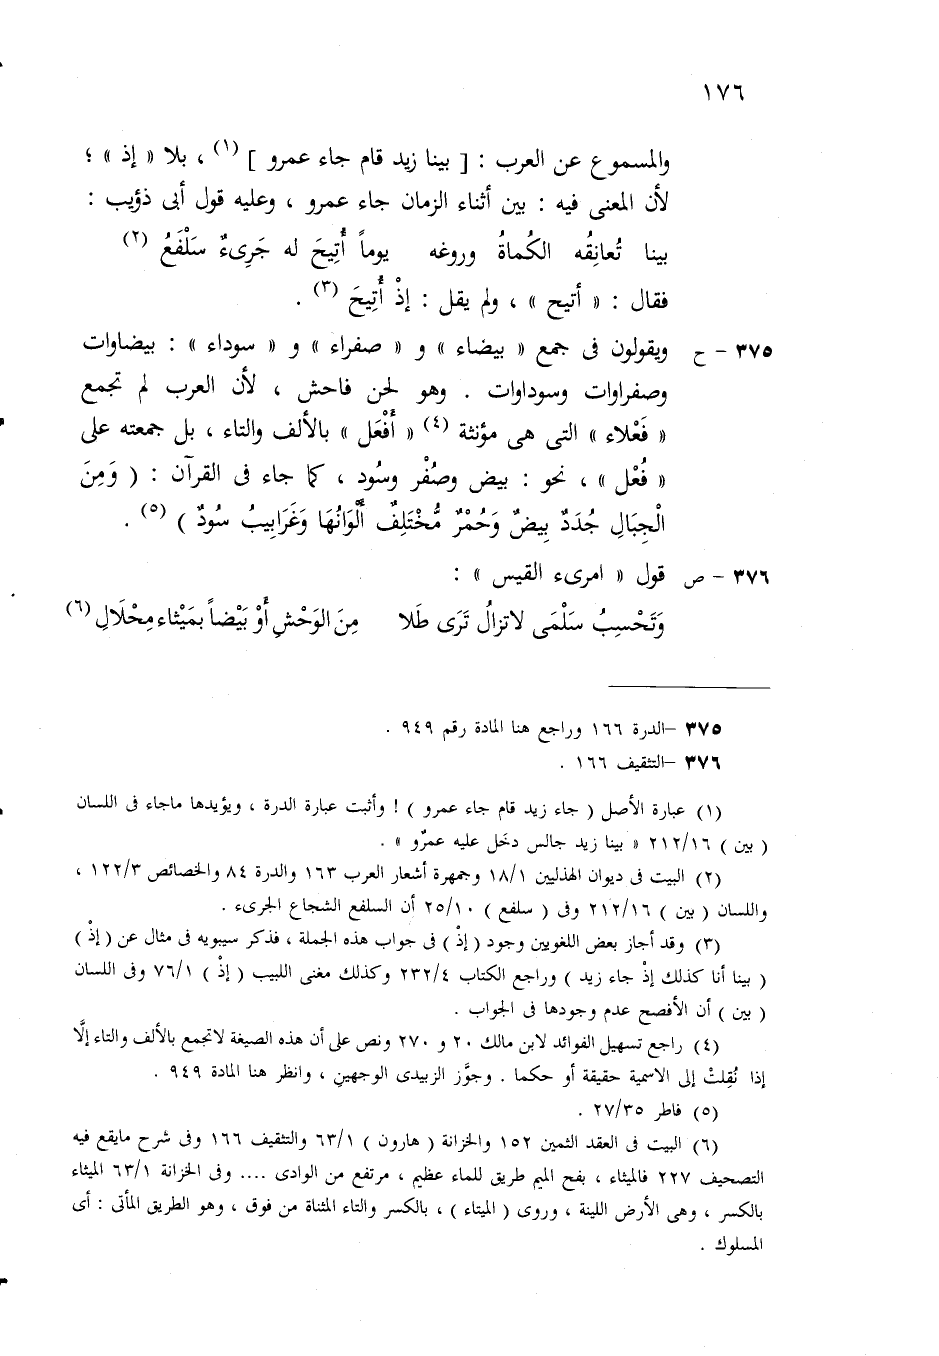 ١٧٦
والمسموع عن العرب : [ بينا زيد قام جاء عمرو ] (١) ، بلا « إذ » ؛
لأن المعنى فيه : بين أثناء الزمان جاء عمرو ، وعليه قول أبى ذؤيب :
بينا تُعانِقُه الكُماةُ وروغه يوماً أُتِيحَ له جَرِىءٌ سَلْفَعُ (٢)
فقال : « أتيح » ، ولم يقل : إذْ أُتِيحَ (٣) .
٣٧٥ – ح ويقولون فى جمع « بيضاء » و « صفراء » و « سوداء » : بيضاوات
وصفراوات وسوداوات . وهو لحن فاحش ، لأن العرب لم تجمع
« فَعْلاء » التى هى مؤنثة (٤) « أَفْعَل » بالألف والتاء ، بل جمعته على
« فُعْل » ، نحو : بيض وصُفْر وسُود ، كما جاء فى القرآن : ( وَمِنَ
الْجِبَالِ جُدَدٌ بِيضٌ وَحُمْرٌ مُّخْتَلِفٌ أَلْوَانُهَا وَغَرَابِيبُ سُودٌ ) (٥) .
٣٧٦ – ص قول « امرىء القيس » :
وَتَحْسِبُ سَلْمَى لاتزالُ تَرَى طَلا مِنَ الوَحْشِ أَوْ بَيْضاً بمَيْثاء مِحْلَالِ (٦)
٣٧٥ –الدرة ١٦٦ وراجع هنا المادة رقم ٩٤٩ .
٣٧٦ –التثقيف ١٦٦ .
(١) عبارة الأصل ( جاء زيد قام جاء عمرو ) ! وأثبت عبارة الدرة ، ويؤيدها ماجاء فى اللسان
( بين ) ٢١٢/١٦ « بينا زيد جالس دخَل عليه عمرٌو » .
(٢) البيت فى ديوان الهذليين ١٨/١ وجمهرة أشعار العرب ١٦٣ والدرة ٨٤ والخصائص ١٢٢/٣ ،
واللسان ( بين ) ٢١٢/١٦ وفى ( سلفع ) ٢٥/١٠ أن السلفع الشجاع الجرىء .
(٣) وقد أجاز بعض اللغويين وجود ( إذْ ) فى جواب هذه الجملة ، فذكر سيبويه فى مثال عن ( إذْ )
( بينا أنا كذلك إذْ جاء زيد ) وراجع الكتاب ٢٣٢/٤ وكذلك مغنى اللبيب ( إذْ ) ٧٦/١ وفى اللسان
( بين ) أن الأفصح عدم وجودها فى الجواب .
(٤) راجع تسهيل الفوائد لابن مالك ٢٠ و ٢٧٠ ونص على أن هذه الصيغة لاتجمع بالألف والتاء إلَّا
إذا نُقِلتْ إلى الاسمية حقيقة أو حكما . وجوَّز الزبيدى الوجهين ، وانظر هنا المادة ٩٤٩ .
(٥) فاطر ٢٧/٣٥ .
(٦) البيت فى العقد الثمين ١٥٢ والخزانة ( هارون ) ٦٣/١ والتثقيف ١٦٦ وفى شرح مايقع فيه
التصحيف ٢٢٧ فالميثاء ، بفح الميم طريق للماء عظيم ، مرتفع من الوادى .... وفى الخزانة ٦٣/١ الميثاء
بالكسر ، وهى الأرض اللينة ، وروى ( الميتاء ) ، بالكسر والتاء المثناة من فوق ، وهو الطريق المأتى : أى
المسلوك .